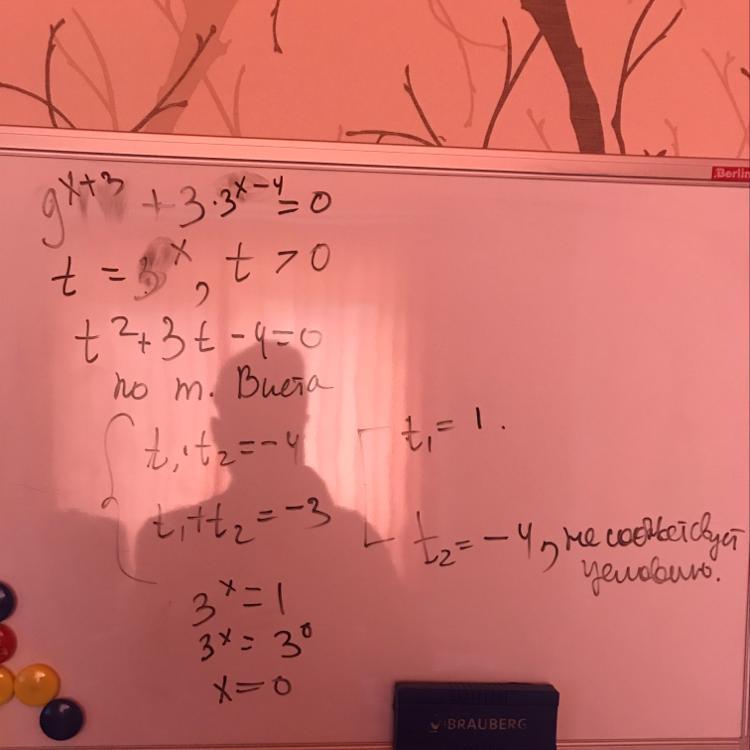 .Berlin
9^{x+3} + 3·3^{x-4} = 0
t = 3^x, t > 0
t² + 3t - 4 = 0
по т. Виета
t₁·t₂ = -4
t₁+t₂ = -3
t₁ = 1.
t₂ = -4, не соответствует
условию.
3^x = 1
3^x = 3^0
x = 0
BRAUBERG